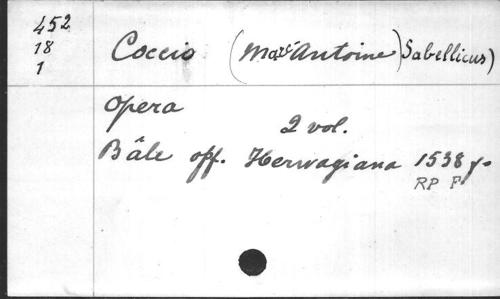 452
18
1
Coccio (Marc Antoine) Sabellicus)
Opera
2 vol.
Bâle off. Herwagiana 1538 f.
RP F